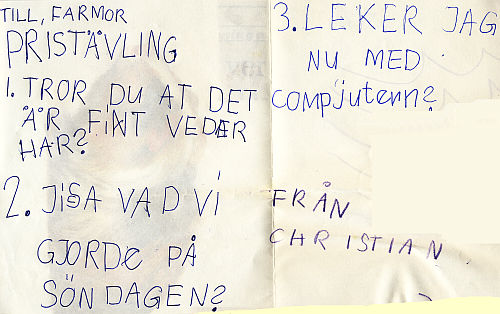 TILL, FARMOR
PRISTÄVLING
1. TROR DU AT DET
ÄR FINT VEDER
HÄR?
2. JISA VAD VI
GJORDE PÅ
SÖNDAGEN?
3. LEKER JAG
NU MED
COMPJUTERN?
FRÅN
CHRISTIAN